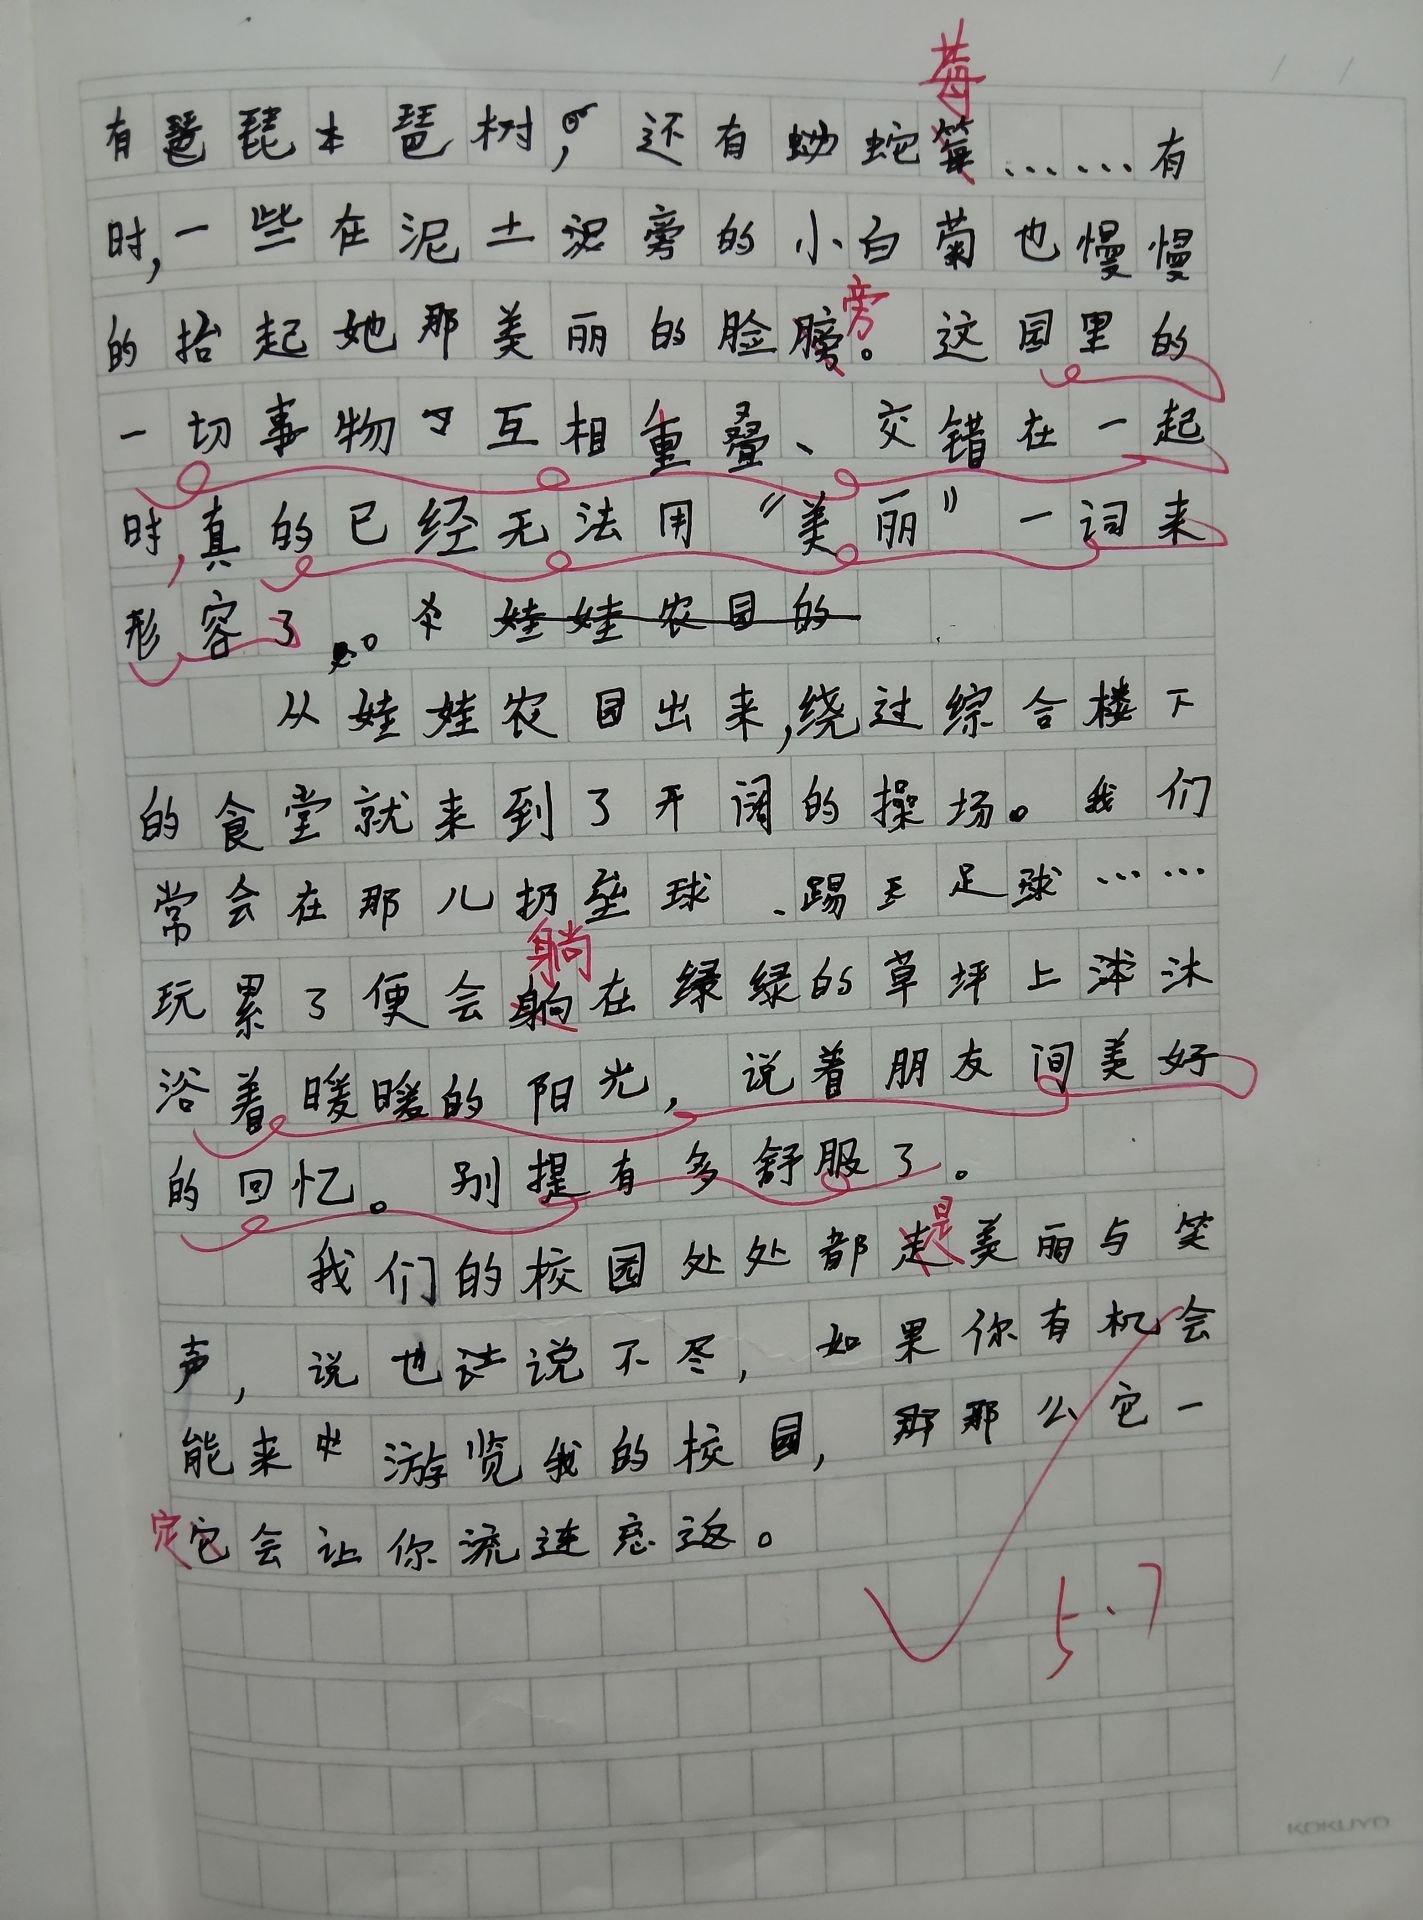 莓
有琶琵本琶树，还有蚴蛇……有
时，一些在泥土泥旁的小白菊也慢慢
旁
的抬起她那美丽的脸膀。这园里的
一切事物互相重叠、交错在一起
时，真的已经无法用“美丽”一词来
形容了。娃娃农园的
从娃娃农园出来，绕过综合楼下
的食堂就来到了开阔的操场。我们
常会在那儿扔垒球、踢足球……
躺
玩累了便会躺在绿绿的草坪上沐
浴着暖暖的阳光，说着朋友间美好
的回忆。别提有多舒服了。
是
我们的校园处处都走美丽与笑
声，说也说不尽，如果你有机会
能来游览我的校园，那那么它一
定它会让你流连忘返。
5.7
KOKUYO